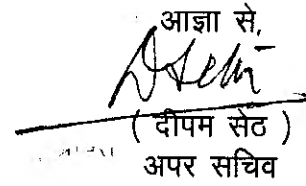 आज्ञा से,
( दीपम सेठ )
अपर सचिव